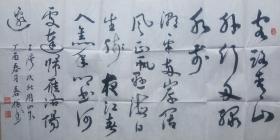 客路青山
外行舟绿
水前
潮平两岸阔
风正一帆悬海日
生残夜江春
入旧年乡书何
处达归雁洛阳
边
王湾次北固山下
丁酉春月